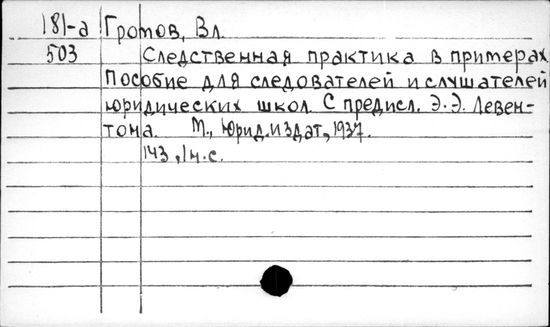 181-а Громов, Вл.
503 Следственная практика в примерах
Пособие для следователей и слушателей
юридических школ. С предисл. Э.Э. Левен-
тона. М., Юрид.издат, 1937.
143, 1 н.с.